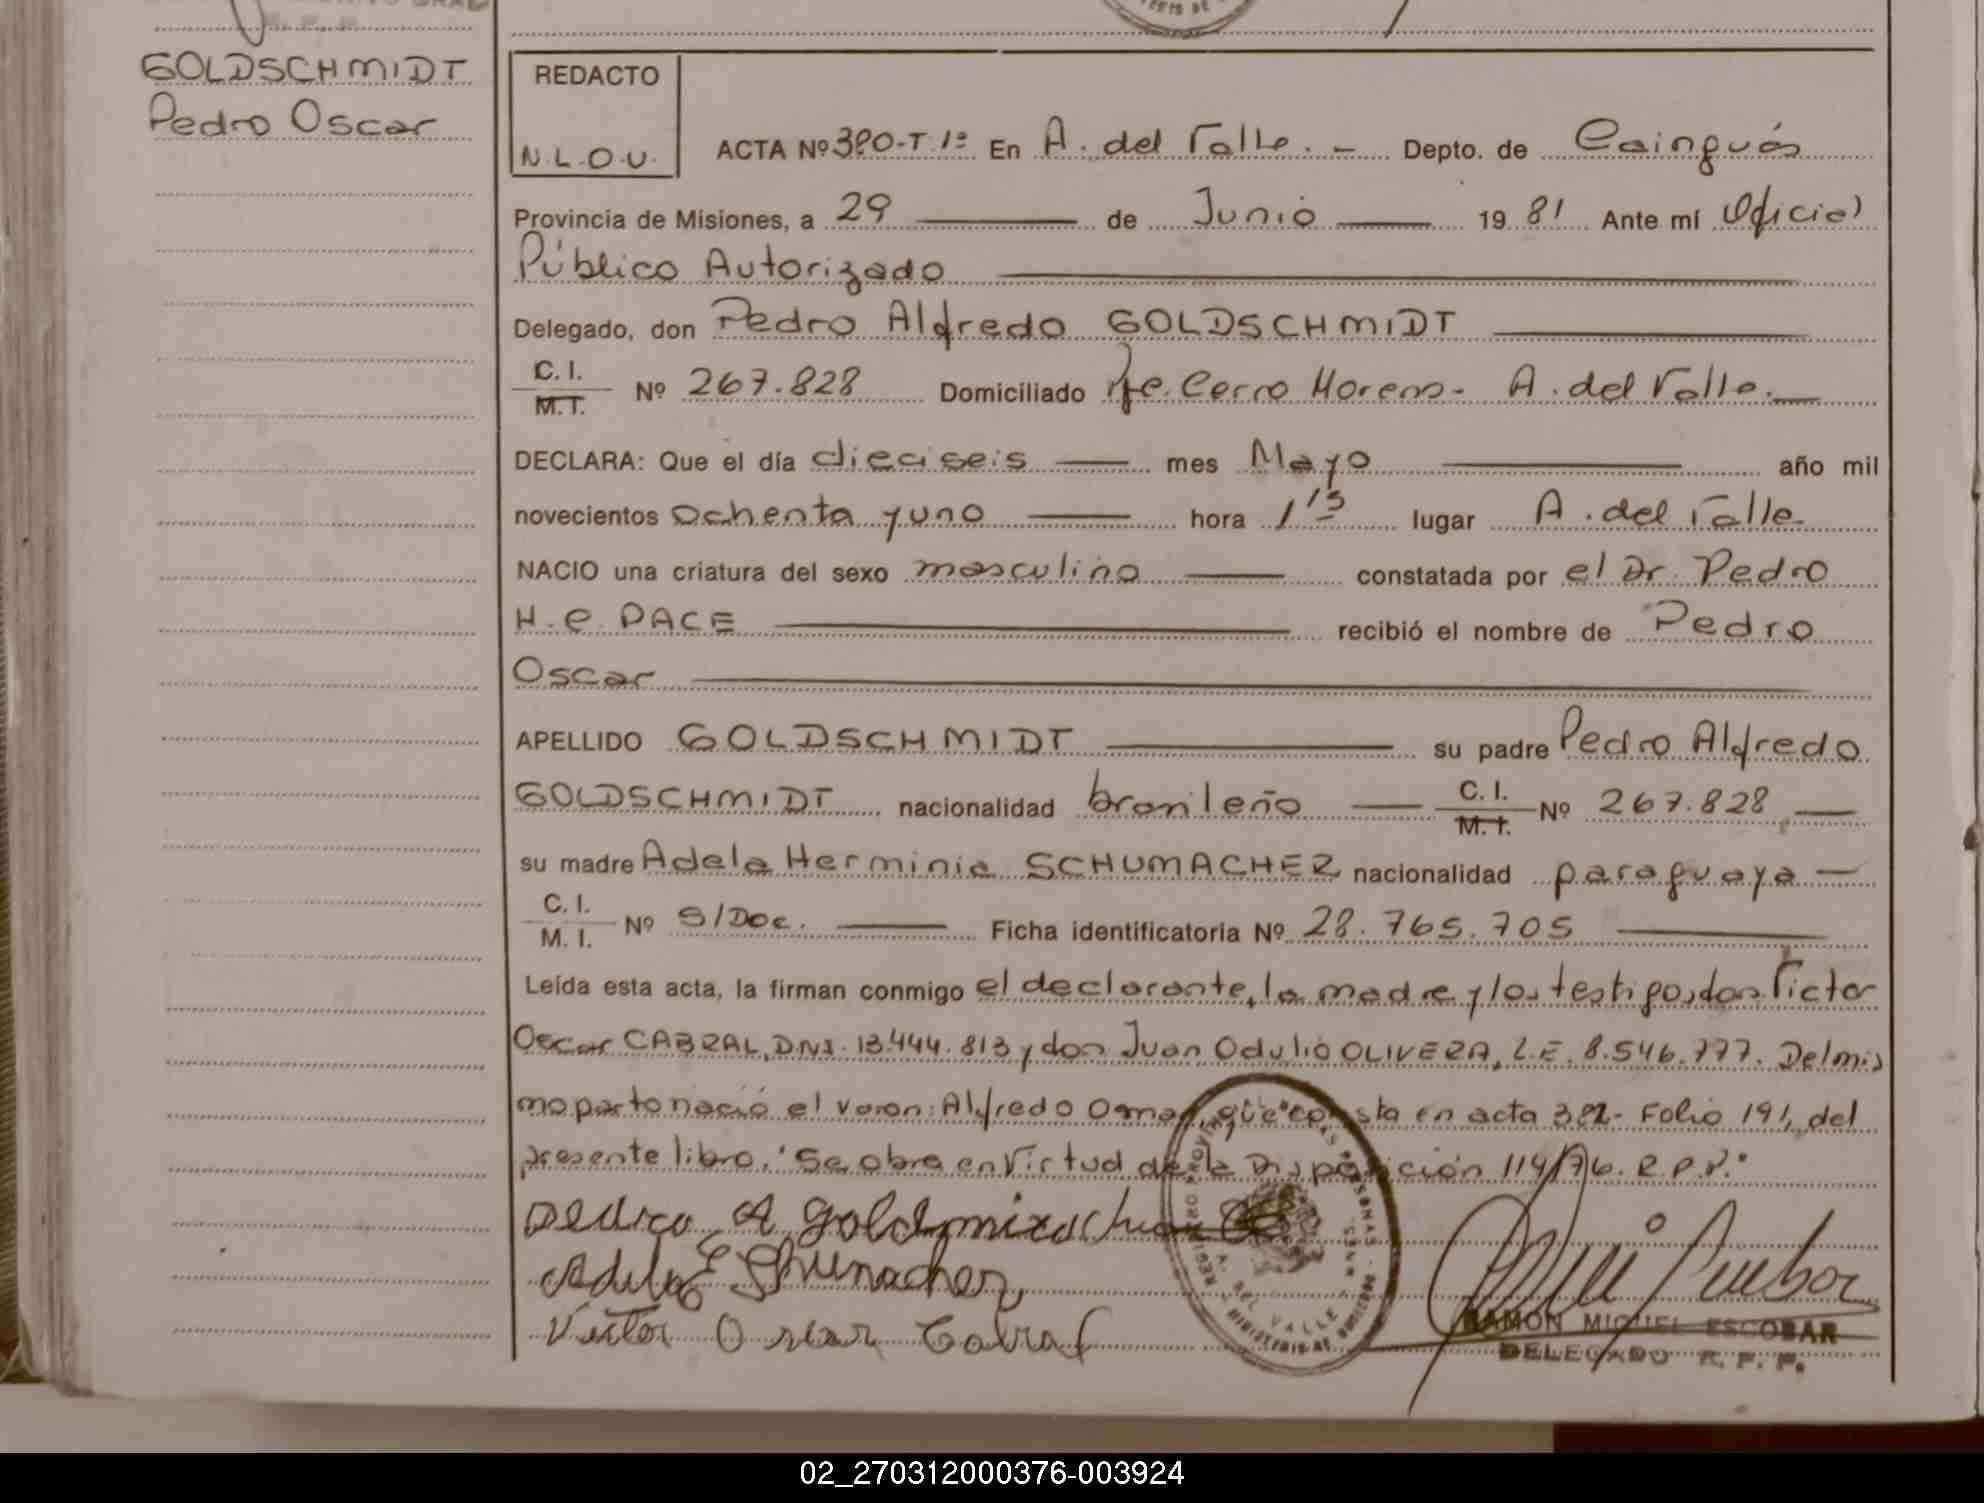 GOLDSCHMIDT
Pedro Oscar
REDACTO
N.L.O.U.
ACTA Nº 380-T.1º En A. del Valle. - Depto. de Cainguás
Provincia de Misiones, a 29 de Junio 1981 Ante mí Oficial
Público Autorizado
Delegado, don Pedro Alfredo GOLDSCHMIDT
C. I. / M. I. Nº 267.828 Domiciliado Pje. Cerro Moreno - A. del Valle.
DECLARA: Que el día dieciseis mes Mayo año mil
novecientos ochenta y uno hora 1 15 lugar A. del Valle
NACIO una criatura del sexo masculino constatada por el Dr. Pedro
H. C. PACE recibió el nombre de Pedro
Oscar
APELLIDO GOLDSCHMIDT su padre Pedro Alfredo
GOLDSCHMIDT nacionalidad brasileño C. I. / M. I. Nº 267.828
su madre Adela Herminia SCHUMACHER nacionalidad paraguaya
C. I. / M. I. Nº S/Doc. Ficha identificatoria Nº 28.765.705
Leída esta acta, la firman conmigo el declarante, la madre y los testigos, don Victor
Oscar CABRAL, DNI. 13.444.813 y don Juan Odulio OLIVERA, L.E. 8.546.777. Del mis
mo parto nació el varon: Alfredo Omar, que consta en acta 382- Folio 191, del
presente libro. "Se obra en Virtud de la Disposición 114/76. R.P.P."
Adela E Shumacher
Victor Oscar Cabral
REGISTRO PROVINCIAL DE LAS PERSONAS
A. DEL VALLE
MISIONES
MINISTERIO DE GOBIERNO
RAMON MIGUEL ESCOBAR
DELEGADO R. P. P.
02_270312000376-003924